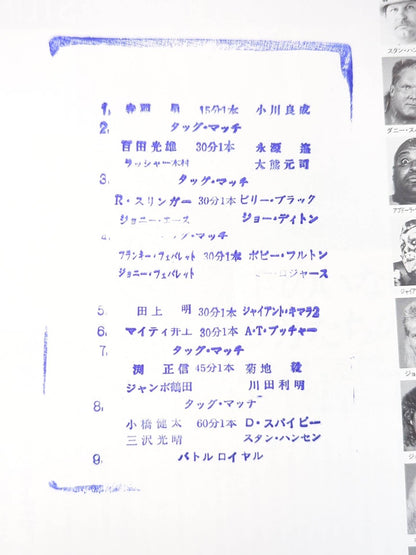 1. 15分1本 小川良成
2. タッグ・マッチ
百田光雄 30分1本 永源遙
ラッシャー木村 大熊元司
3. タッグ・マッチ
R・スリンガー 30分1本 ビリー・ブラック
ジョニー・エース ジョー・ディトン
4. タッグ・マッチ
フランキー・フェバレット 30分1本 ボビー・フルトン
ジョニー・フェバレット ロジャース
5. 田上 明 30分1本 ジャイアント・キマラ2
6. マイティ井上 30分1本 A・T・ブッチャー
7. タッグ・マッチ
渕 正信 45分1本 菊地 毅
ジャンボ鶴田 川田利明
8. タッグ・マッチ
小橋健太 60分1本 D・スパイビー
三沢光晴 スタン・ハンセン
9. バトルロイヤル
スタン・ハン
ダニー・ス
アブドーラ・
ジャイア